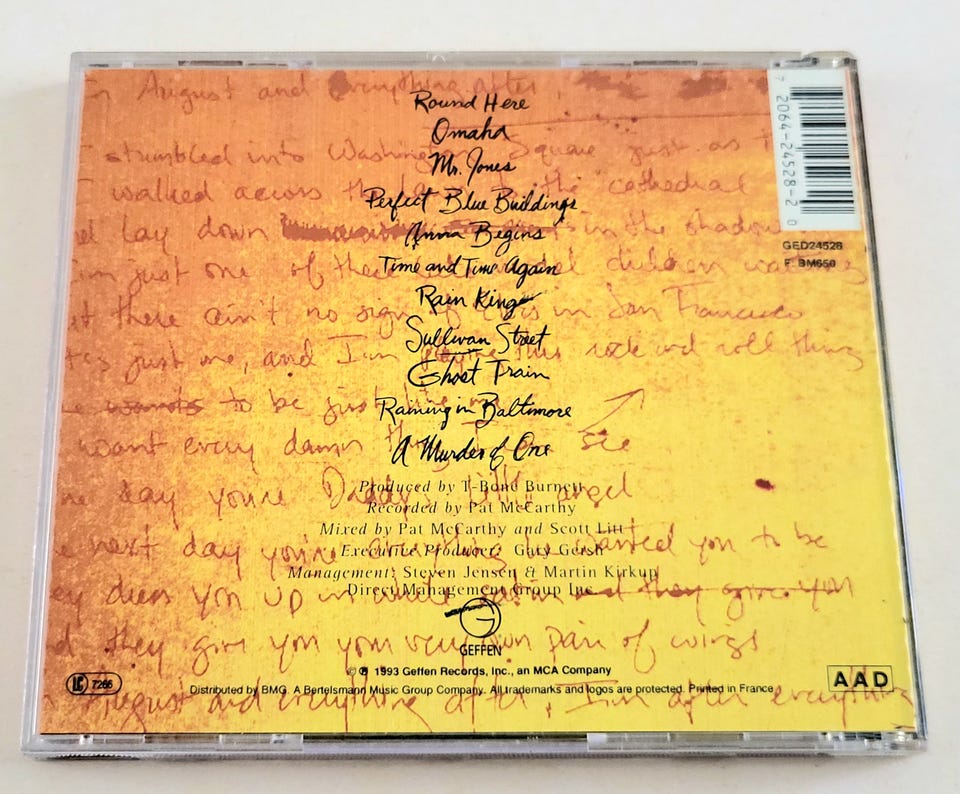 August and everything after
Round Here
Omaha
stumbled into Washington Square just as I
Mr. Jones
walked across the the cathedral
Perfect Blue Buildings
lay down in the shadow
Anna Begins
just one of children
Time and Time Again
Rain King
there ain't no sign of in San Francisco
Sullivan Street
just me, and I'm this rock and roll thing
Ghost Train
wants to be just
Raining in Baltimore
want every damn see
A Murder of One
Produced by T-Bone Burnett
day you're Daddy's angel
Recorded by Pat McCarthy
Mixed by Pat McCarthy and Scott Litt
Executive Producer: Gary Gersh
next day you're wanted you to be
Management: Steven Jensen & Martin Kirkup
Direct Management Group Inc.
dress you up in white and they give you
they give you your very own pair of wings
G
GEFFEN
© ℗ 1993 Geffen Records, Inc., an MCA Company
Distributed by BMG. A Bertelsmann Music Group Company. All trademarks and logos are protected. Printed in France
August and everything after, I'm after everything
LC 7266
AAD
7 2064-24528-2 0
GED24528
F: BM650